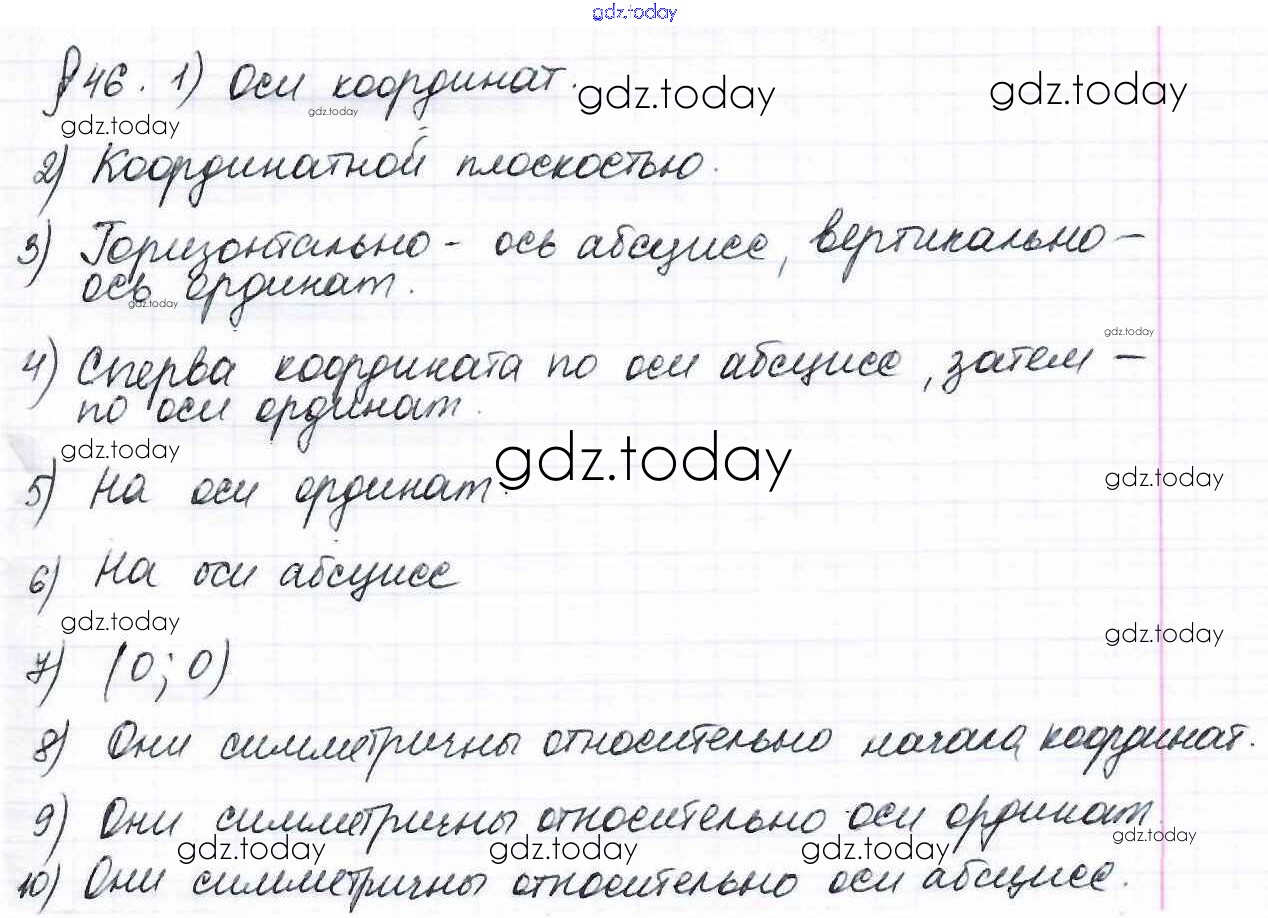 gdz.today
§46. 1) Оси координат.
gdz.today
gdz.today
gdz.today
gdz.today
2) Координатной плоскостью.
3) Горизонтально - ось абсцисс, вертикально -
ось ординат.
gdz.today
gdz.today
4) Сперва координата по оси абсцисс, затем -
по оси ординат.
gdz.today
gdz.today
gdz.today
5) На оси ординат.
6) На оси абсцисс
gdz.today
gdz.today
7) (0; 0)
8) Они симметричны относительно начала координат.
9) Они симметричны относительно оси ординат.
gdz.today
gdz.today
gdz.today
gdz.today
10) Они симметричны относительно оси абсцисс.